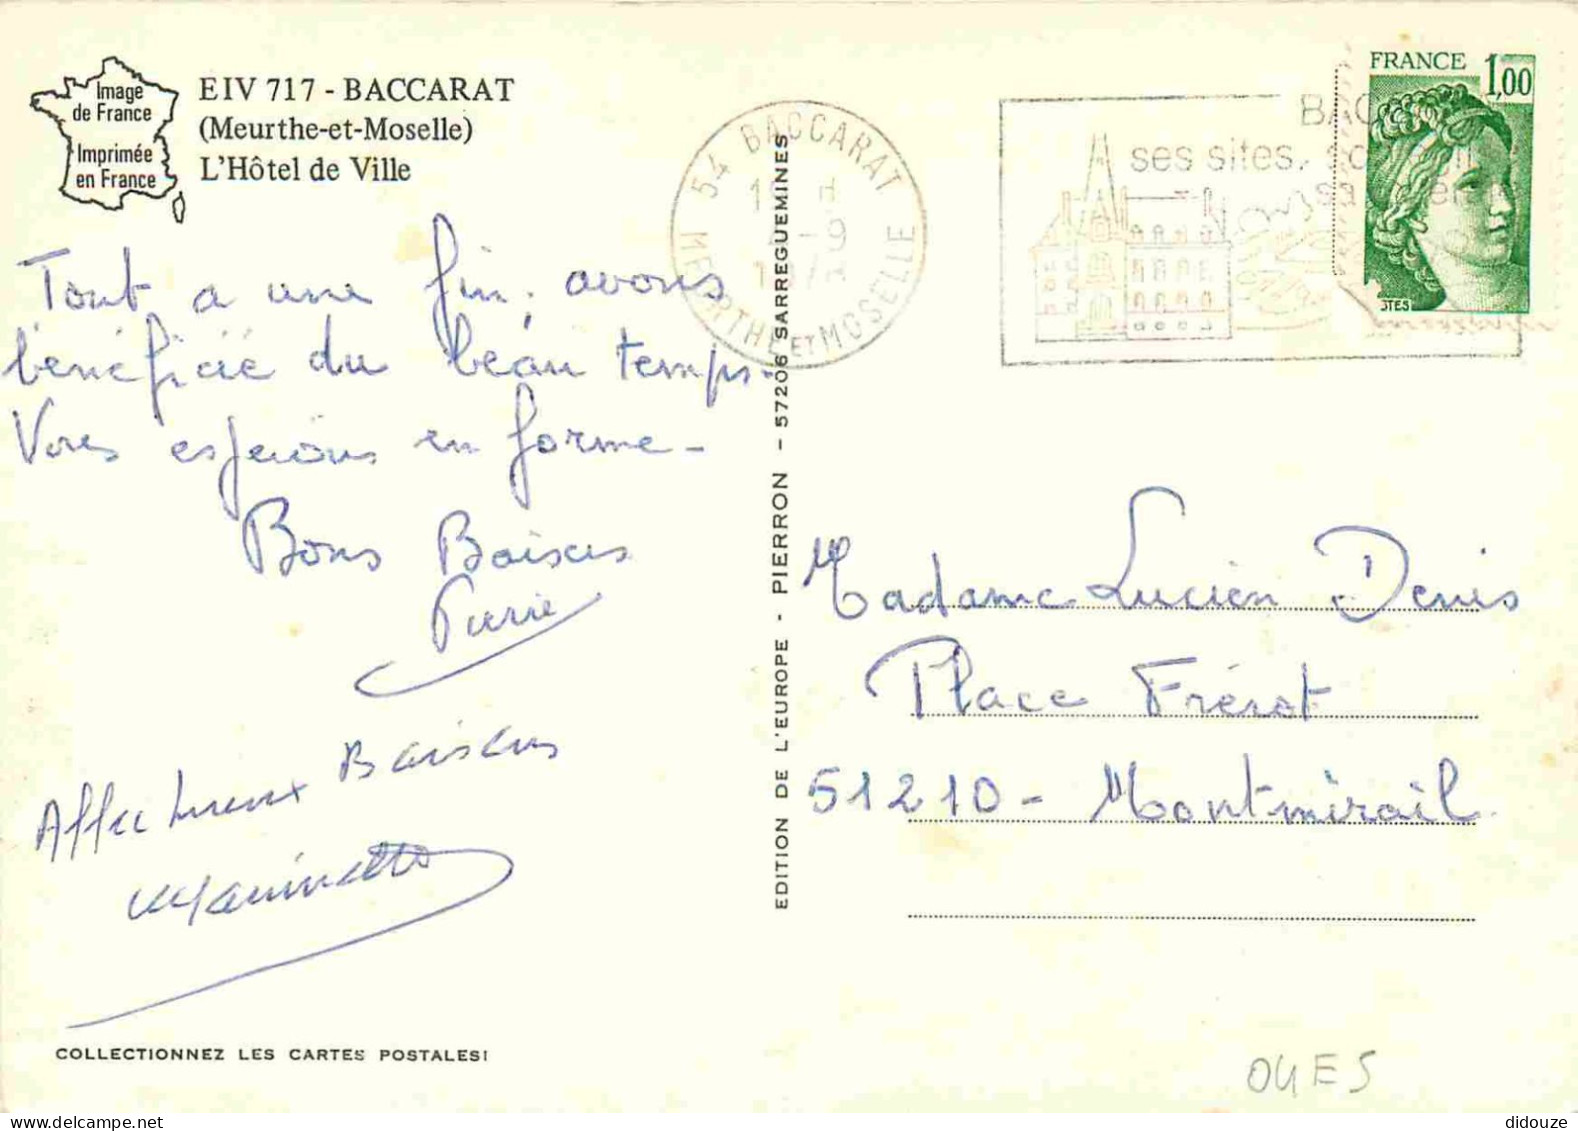 Image
de France
Imprimée
en France
EIV 717 - BACCARAT
(Meurthe-et-Moselle)
L'Hôtel de Ville
Tout a une fin. avons
bénéficié du beau temps.
Vous espérons en forme -
Bons Baisers
Pierre
Affectueux Baisers
COLLECTIONNEZ LES CARTES POSTALES!
EDITION DE L'EUROPE - PIERRON - 57206 SARREGUEMINES
54 BACCARAT
MEURTHE ET MOSELLE
ses sites,
FRANCE 1,00
Madame Lucien Denis
Place Frérot
51210 - Montmirail
04 E S
didouze